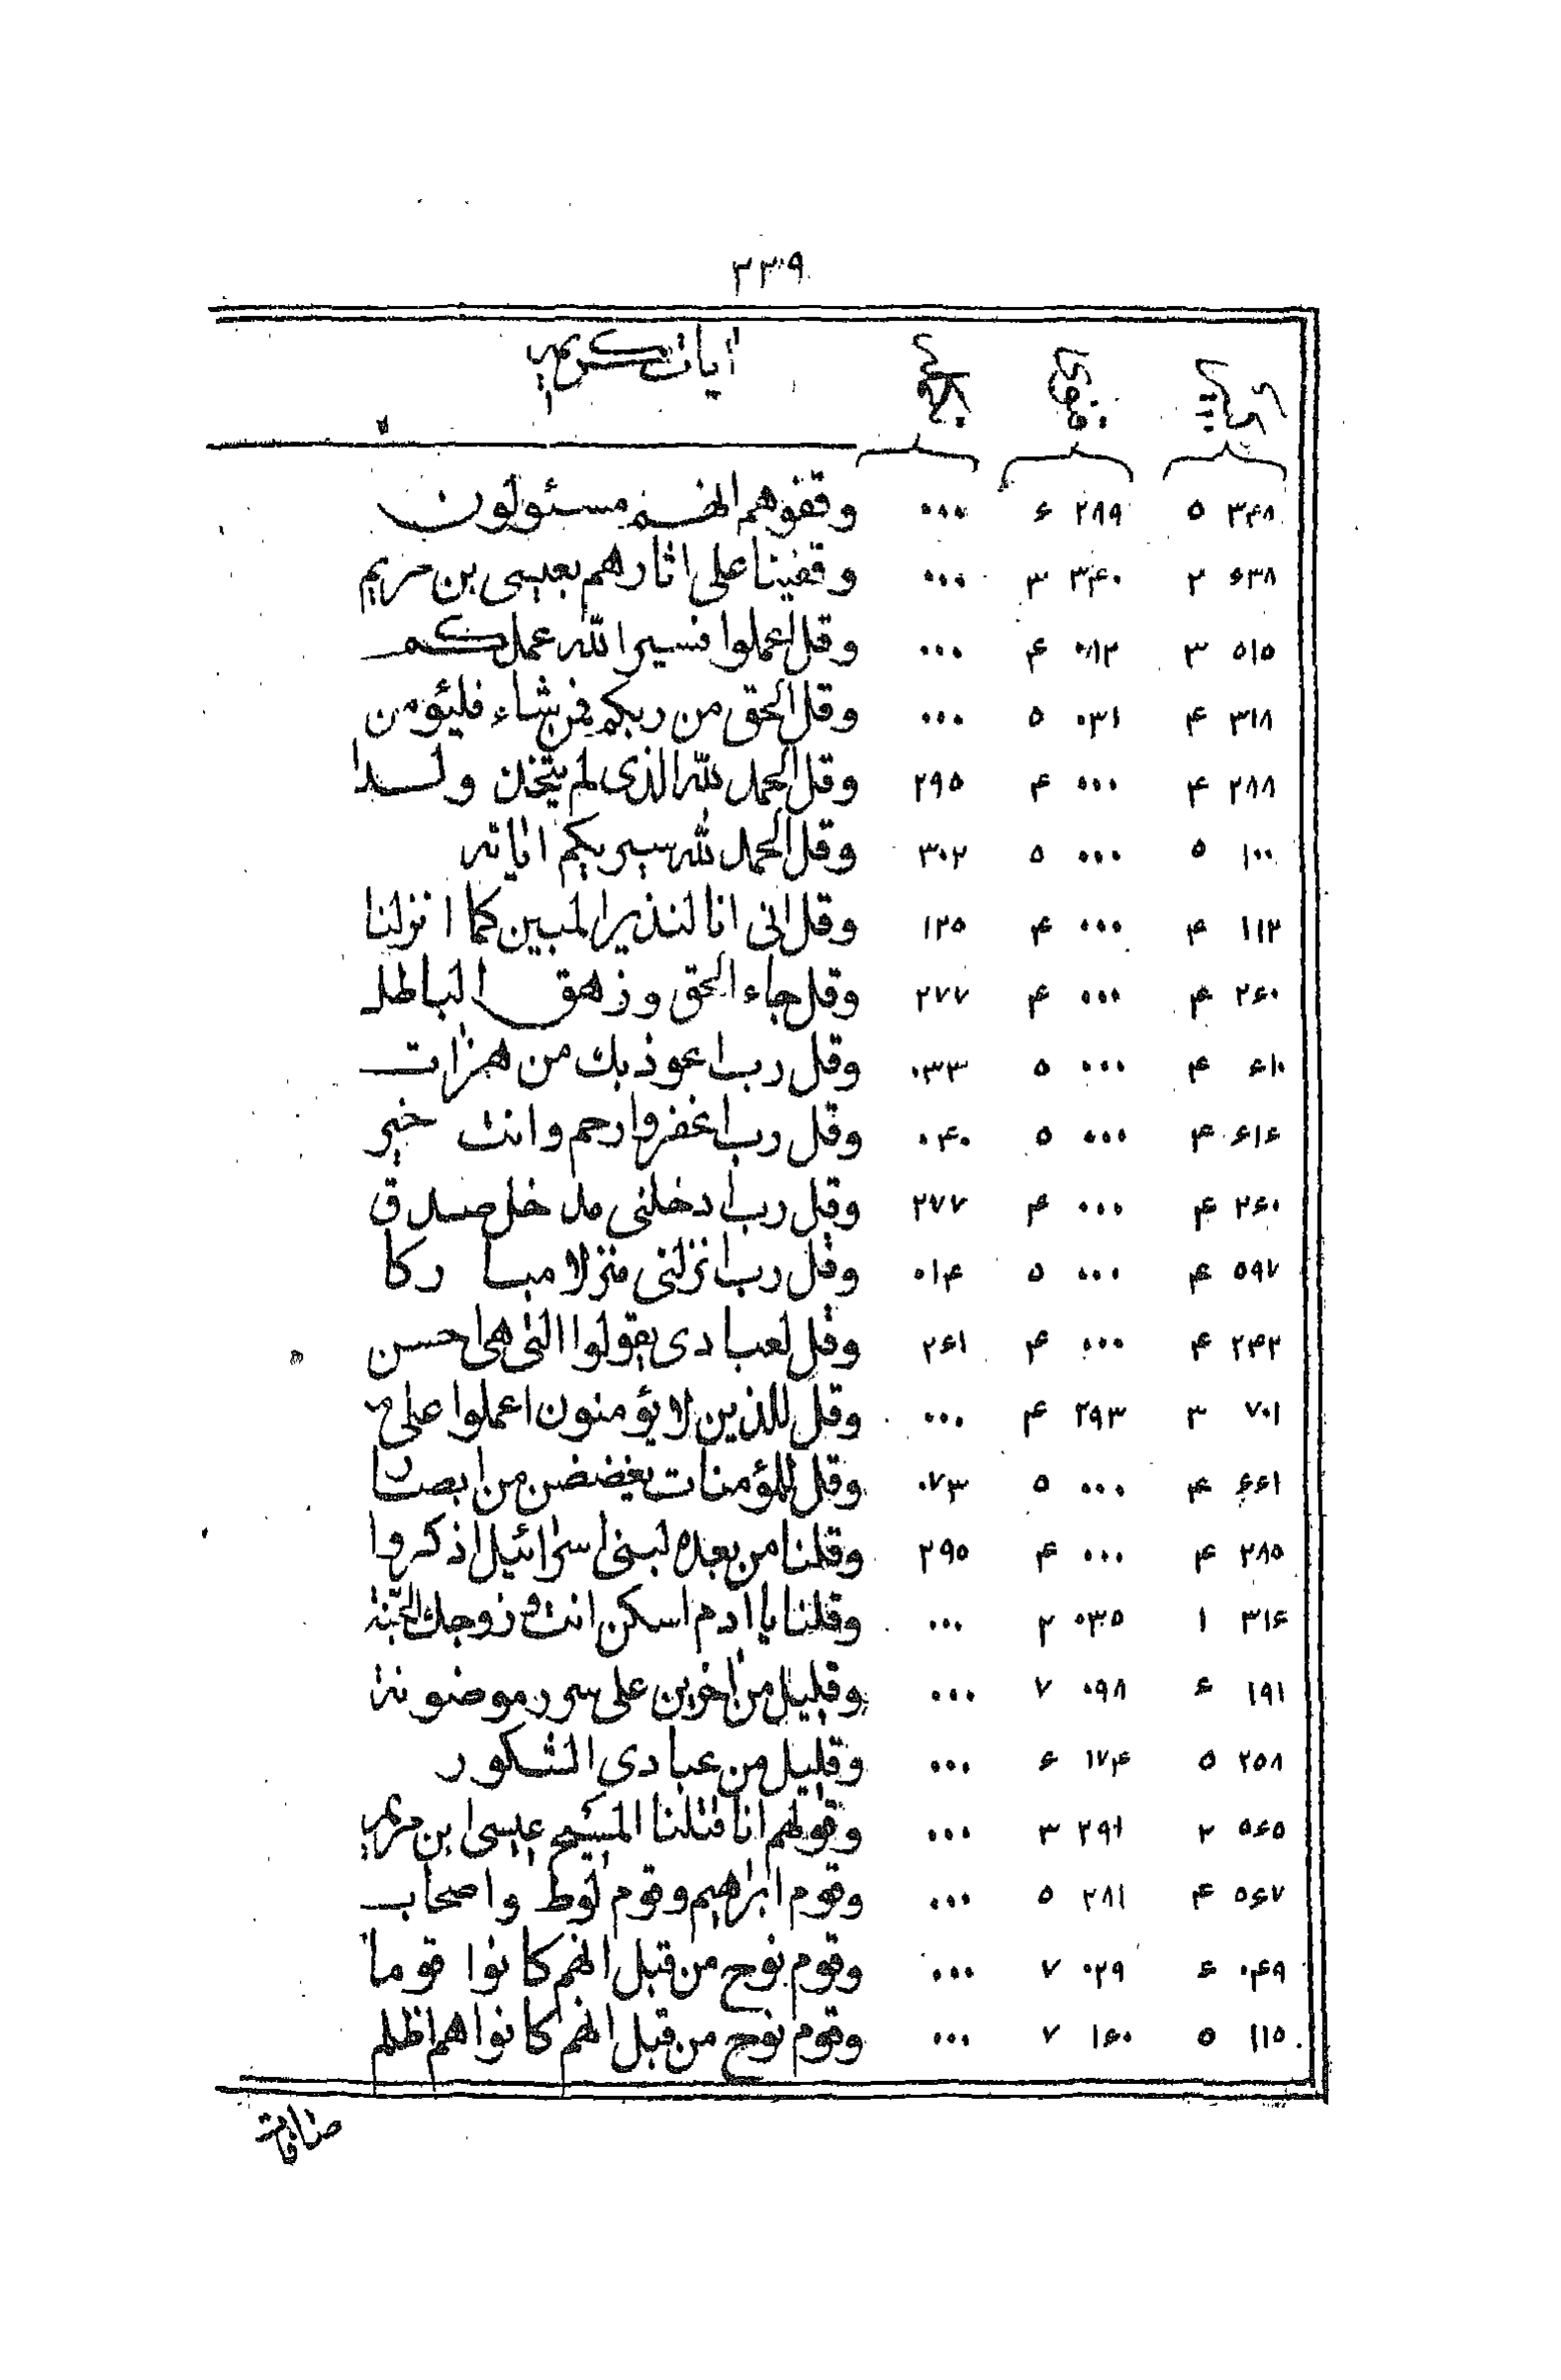 ٢٣٩
ايات كريمه
٣٤٨ ٥ ٢٨٩ ۶ ٠٠٠ وقفوهم انهم مسئولون
۶٣٨ ٢ ٣۴٠ ٣ ٠٠٠ وقفينا على اثارهم بعيسى بن مريم
٥١٥ ٣ ٠١٢ ۴ ٠٠٠ وقل اعملوا فسيرا لله عملكم
٣١٨ ۴ ٠٣١ ٥ ٠٠٠ وقل الحق من ربكم فمن شاء فليؤمن
٢٨٨ ۴ ٠٠٠ ۴ ٢٩٥ وقل الحمد لله الذى لم يتخذ ولدا
١٠٠ ٥ ٠٠٠ ٥ ٣٠٢ وقل الحمد لله سيريكم اياته
١١٢ ۴ ٠٠٠ ۴ ١٢٥ وقل انى انا لنذير المبين كما انزلنا
٢۶٠ ۴ ٠٠٠ ۴ ٢٧٧ وقل جاء الحق وزهق الباطل
۶١٠ ۴ ٠٠٠ ٥ ٠٣٣ وقل رب اعوذ بك من همزات
۶١۶ ۴ ٠٠٠ ٥ ٠۴٠ وقل رب اغفر وارحم وانت خير
٢۶٠ ۴ ٠٠٠ ۴ ٢٧٧ وقل رب ادخلنى مدخل صدق
٥٩٧ ۴ ٠٠٠ ٥ ٠١۴ وقل رب انزلنى منزلا مباركا
٢۴٢ ۴ ٠٠٠ ۴ ٢۶١ وقل لعبادى يقولوا التى هى احسن
٧٠١ ٣ ٢٩٣ ۴ ٠٠٠ وقل للذين لا يؤمنون اعملوا على م
۶۶١ ۴ ٠٠٠ ٥ ٠٧٣ وقل للمؤمنات يغضضن من ابصار
٢٨٥ ۴ ٠٠٠ ۴ ٢٩٥ وقلنا من بعده لبنى اسرائيل اذكروا
٣١۶ ١ ٠٣٥ ٢ ٠٠٠ وقلنا يا ادم اسكن انت وزوجك الجنة
١٩١ ۶ ٠٩٨ ٧ ٠٠٠ وقليل من اخرين على سرر موضونة
٢٥٨ ٥ ١٧۴ ۶ ٠٠٠ وقليل من عبادى الشكور
٥۶٥ ٢ ٢٩١ ٣ ٠٠٠ وقولهم انا قتلنا المسيح عيسى ابن مريم
٥۶٧ ۴ ٢٨١ ٥ ٠٠٠ وقوم ابراهيم وقوم لوط واصحاب
٠۴٩ ۶ ٠٢٩ ٧ ٠٠٠ وقوم نوح من قبل انهم كانوا قوما
١١٥ ٥ ١۶٠ ٧ ٠٠٠ وقوم نوح من قبل انهم كانوا هم اظلم